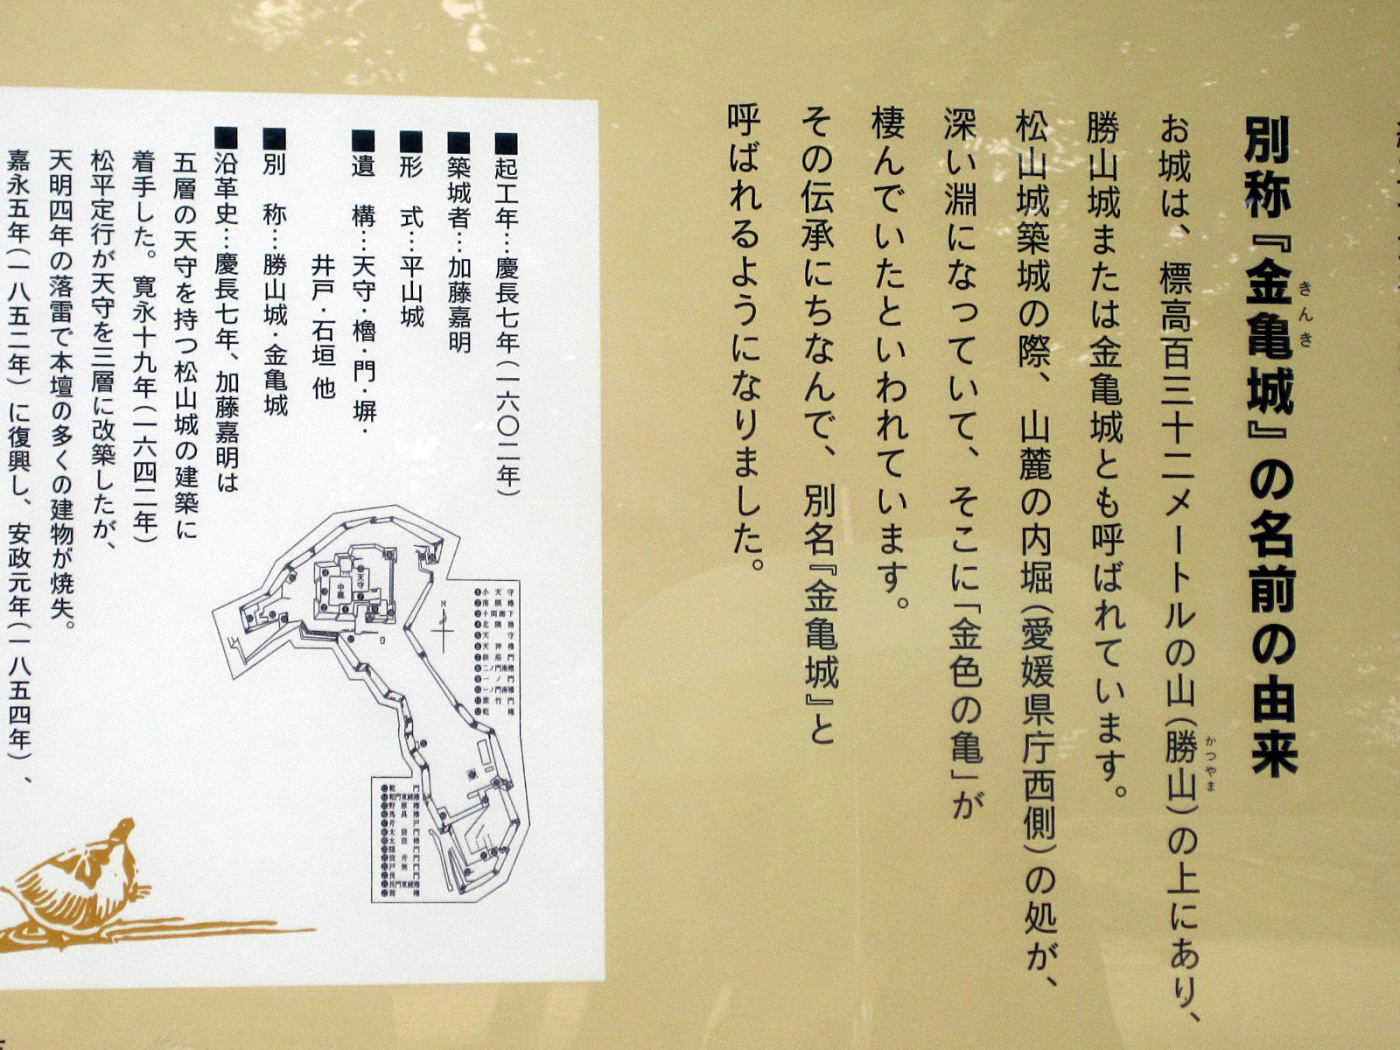 別称『金亀城』の名前の由来
きんき
お城は、標高百三十二メートルの山（勝山）の上にあり、
かつやま
勝山城または金亀城とも呼ばれています。
松山城築城の際、山麓の内堀（愛媛県庁西側）の処が、
深い淵になっていて、そこに「金色の亀」が
棲んでいたといわれています。
その伝承にちなんで、別名『金亀城』と
呼ばれるようになりました。
■起工年…慶長七年（一六〇二年）
■築城者…加藤嘉明
■形　式…平山城
■遺　構…天守・櫓・門・塀・
井戸・石垣 他
■別　称…勝山城・金亀城
■沿革史…慶長七年、加藤嘉明は
五層の天守を持つ松山城の建築に
着手した。寛永十九年（一六四二年）
松平定行が天守を三層に改築したが、
天明四年の落雷で本壇の多くの建物が焼失。
嘉永五年（一八五二年）に復興し、安政元年（一八五四年）、
天守
中庭
N